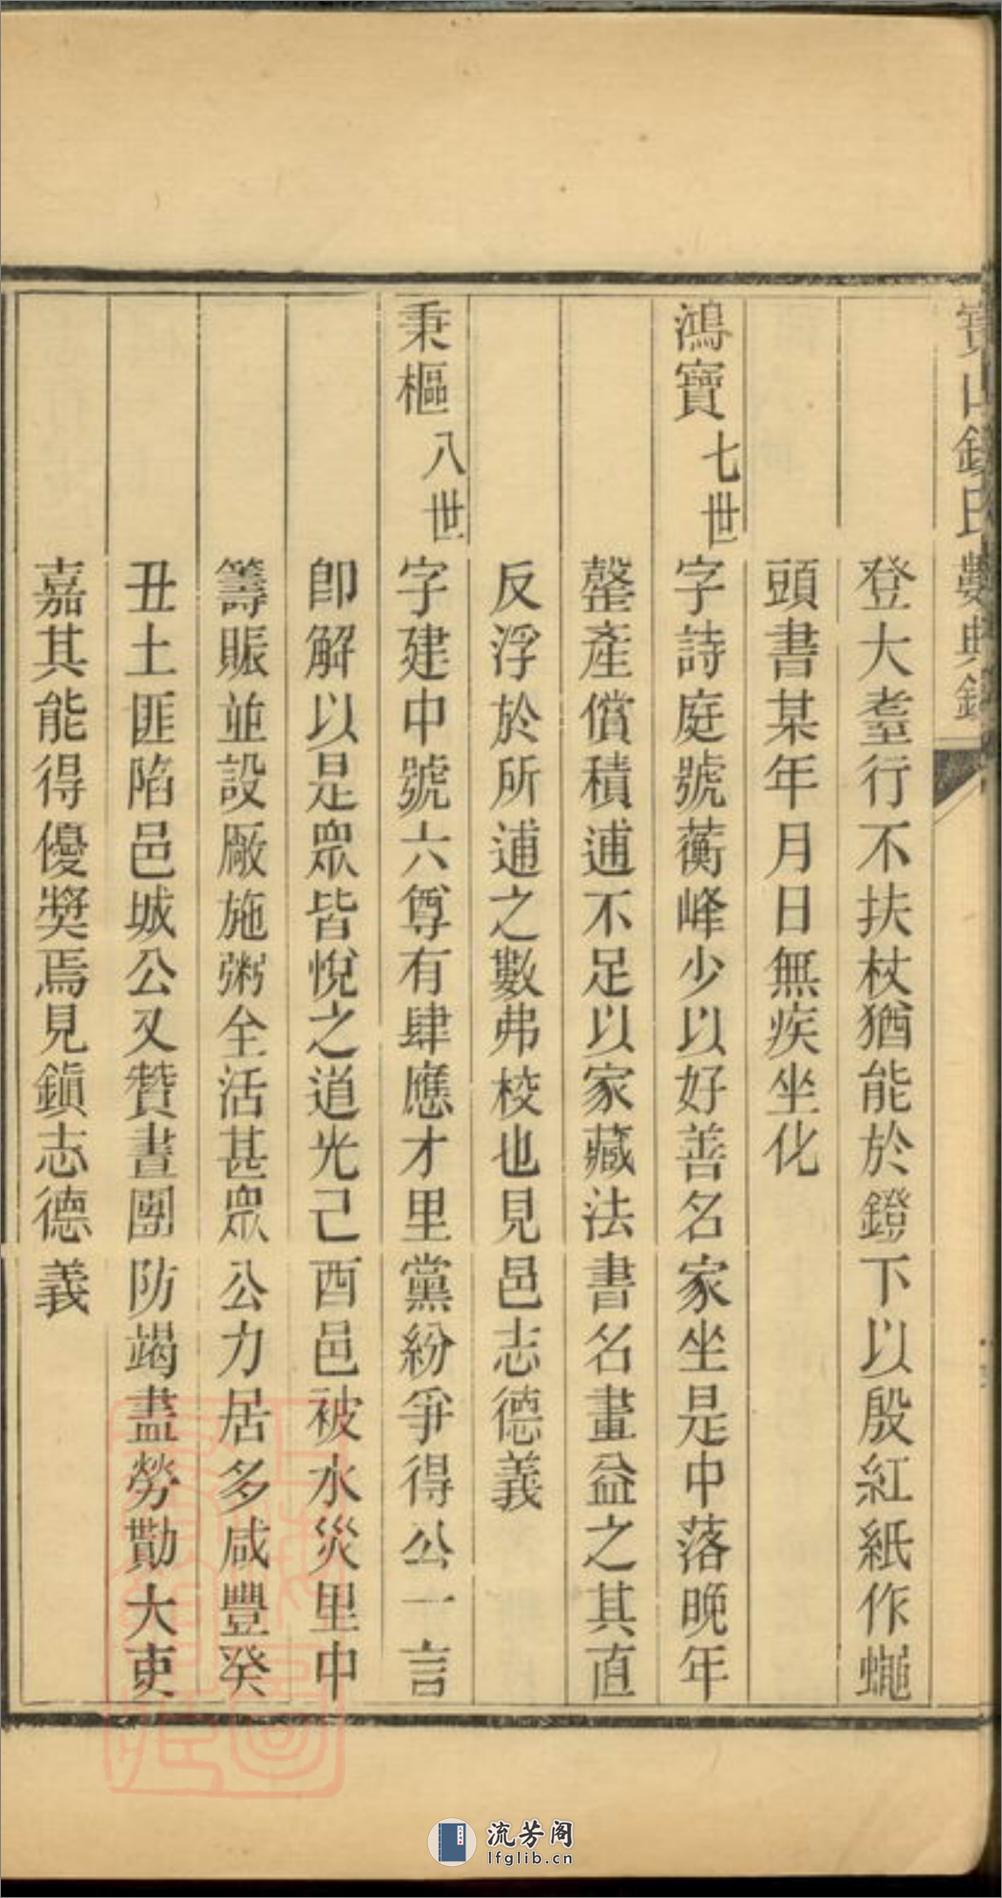 寶山錢氏數典錄
登大耋行不扶杖猶能於鐙下以殷紅紙作蠅
頭書某年月日無疾坐化
鴻寶七世字詩庭號蘅峰少以好善名家坐是中落晚年
罄產償積逋不足以家藏法書名畫益之其直
反浮於所逋之數弗校也見邑志德義
秉樞八世字建中號六尊有肆應才里黨紛爭得公一言
卽解以是眾皆悅之道光己酉邑被水災里中
籌賑並設厰施粥全活甚眾公力居多咸豐癸
丑土匪陷邑城公又贊畫團防竭盡勞勩大吏
嘉其能得優獎焉見鎭志德義
流芳阁
lfglib.cn